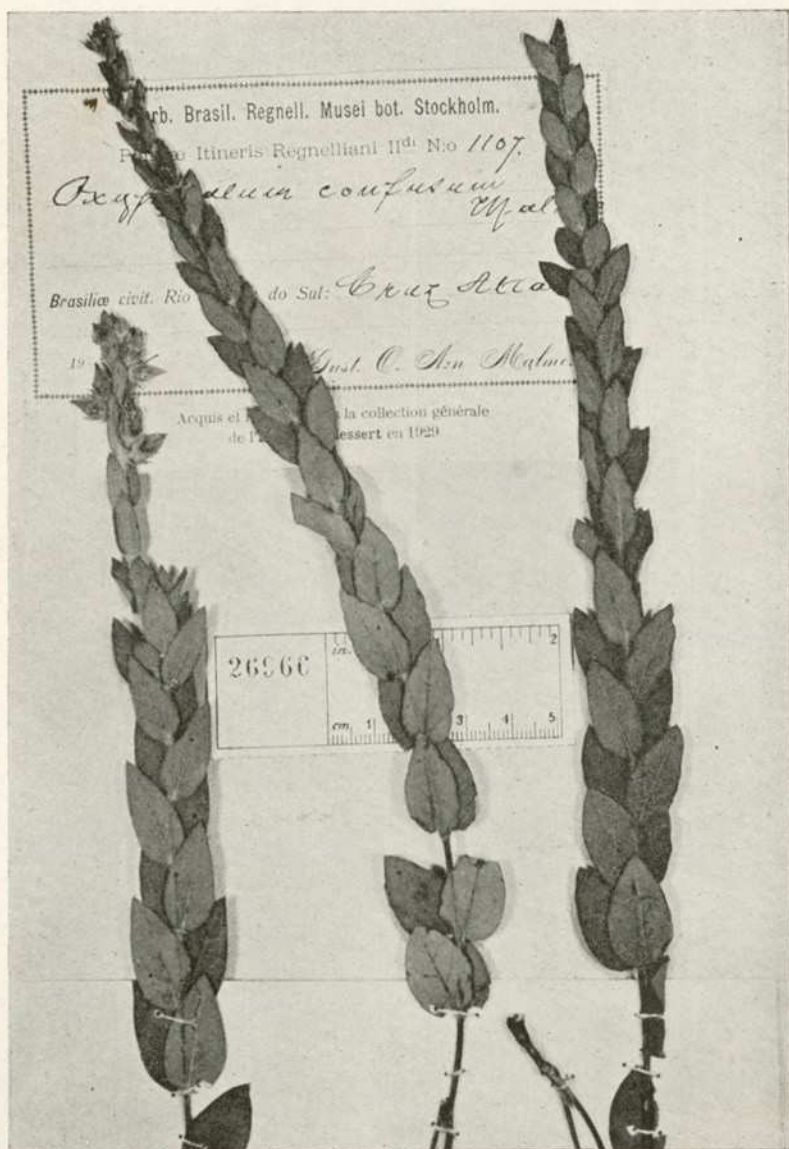 rb. Brasil. Regnell. Musei bot. Stockholm.
Itineris Regnelliani IIdi N:o 1107.
confusum
Brasiliæ civit. Rio do Sul: Cruz Alta
19
Gust. O. A:n Malme.
Acquis et la collection générale
de l' essert en 1929
26960
in. 2
cm 1 3 4 5